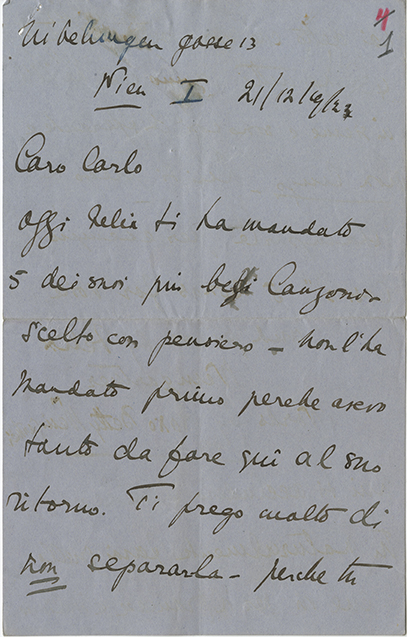 4
1
Nibelungen gasse 13
Wien I 21/12/19/22
Caro Carlo
oggi ti ha mandato
5 dei suoi più Canzoni
scelto con pensiero – non l'ha
mandato primo perche avevo
tanto da fare quì al suo
ritorno. Ti prego molto di
non separarla – perche tu